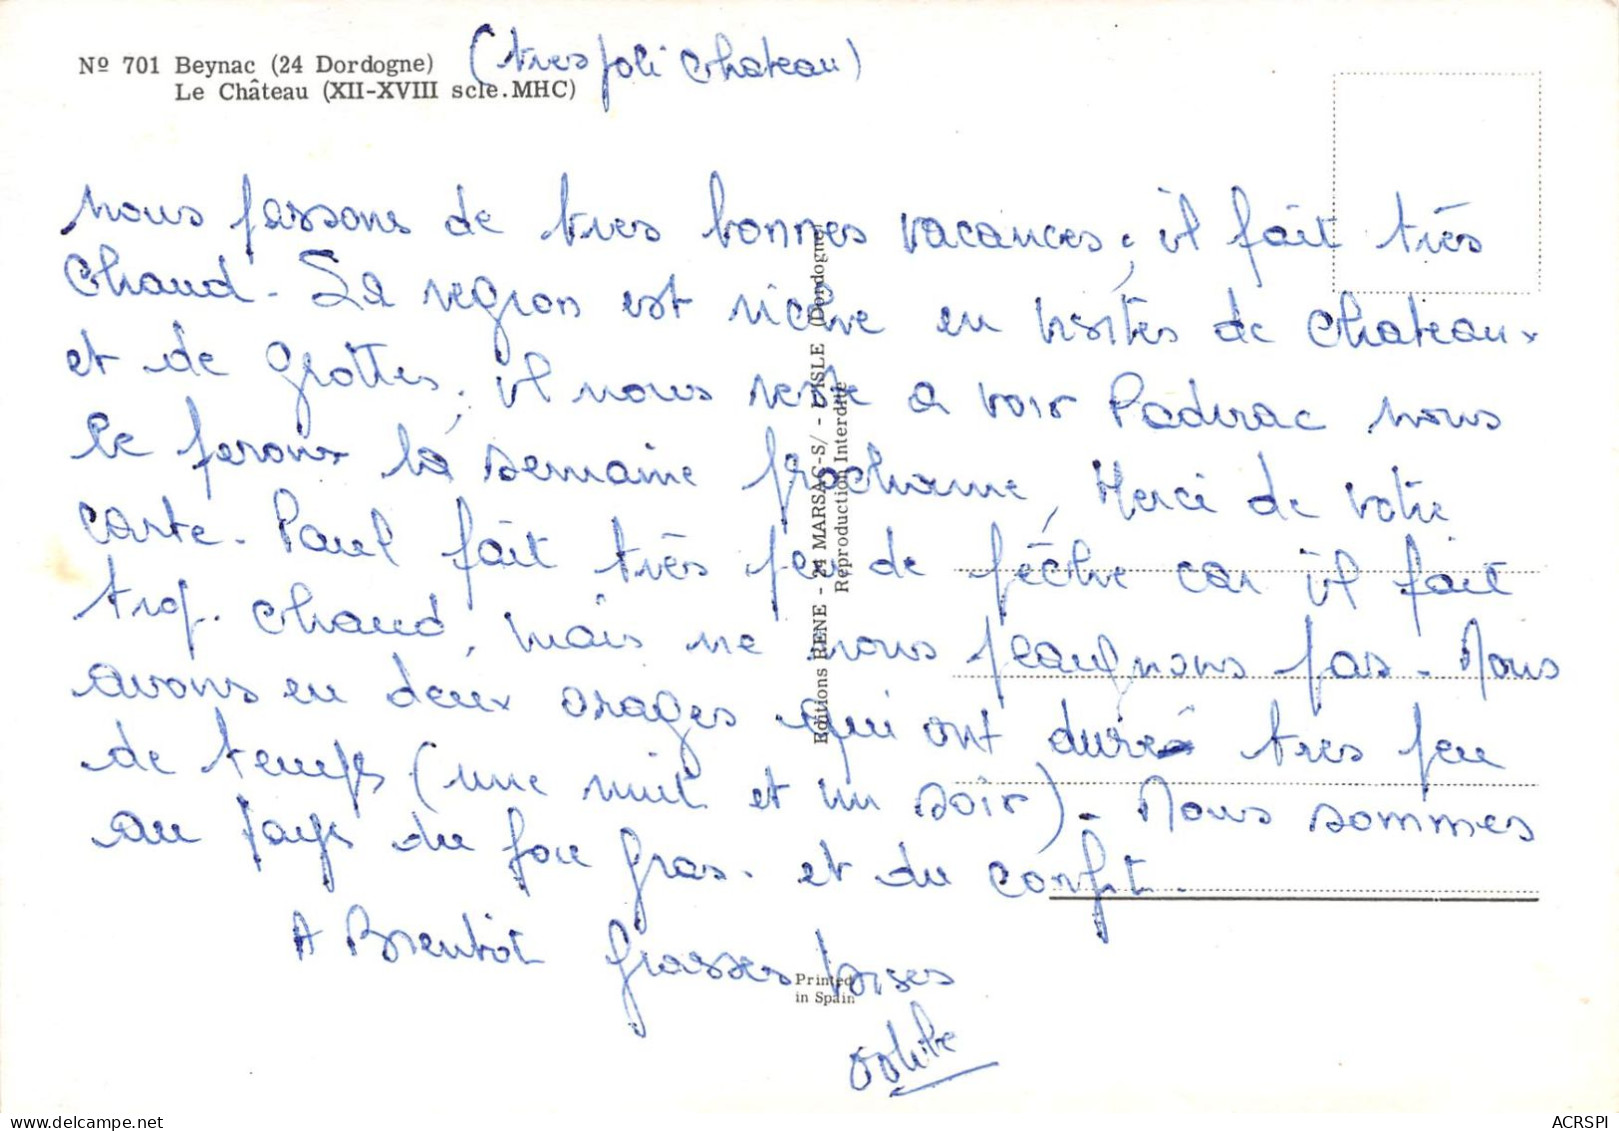 Nº 701 Beynac (24 Dordogne) (tres joli chateau)
Le Château (XII-XVIII scle.MHC)
nous passons de tres bonnes vacances, il fait très
chaud - La region est riche en visites de chateaux
et de grottes, il nous reste a voir Padirac nous
le ferons la semaine prochaine, Merci de votre
carte - Paul fait très peu de pêche car il fait
trop chaud, mais ne nous plaignons pas - Nous
avons eu deux orages qui ont duré tres peu
de temps (une nuit et un soir) - Nous sommes
au pays du foie gras. et du confit.
A Bientôt grosses bises
Editions RENE - 24 MARSAC-S/ - L'ISLE (Dordogne)
Reproduction Interdite
Printed
in Spain
ACRSPI